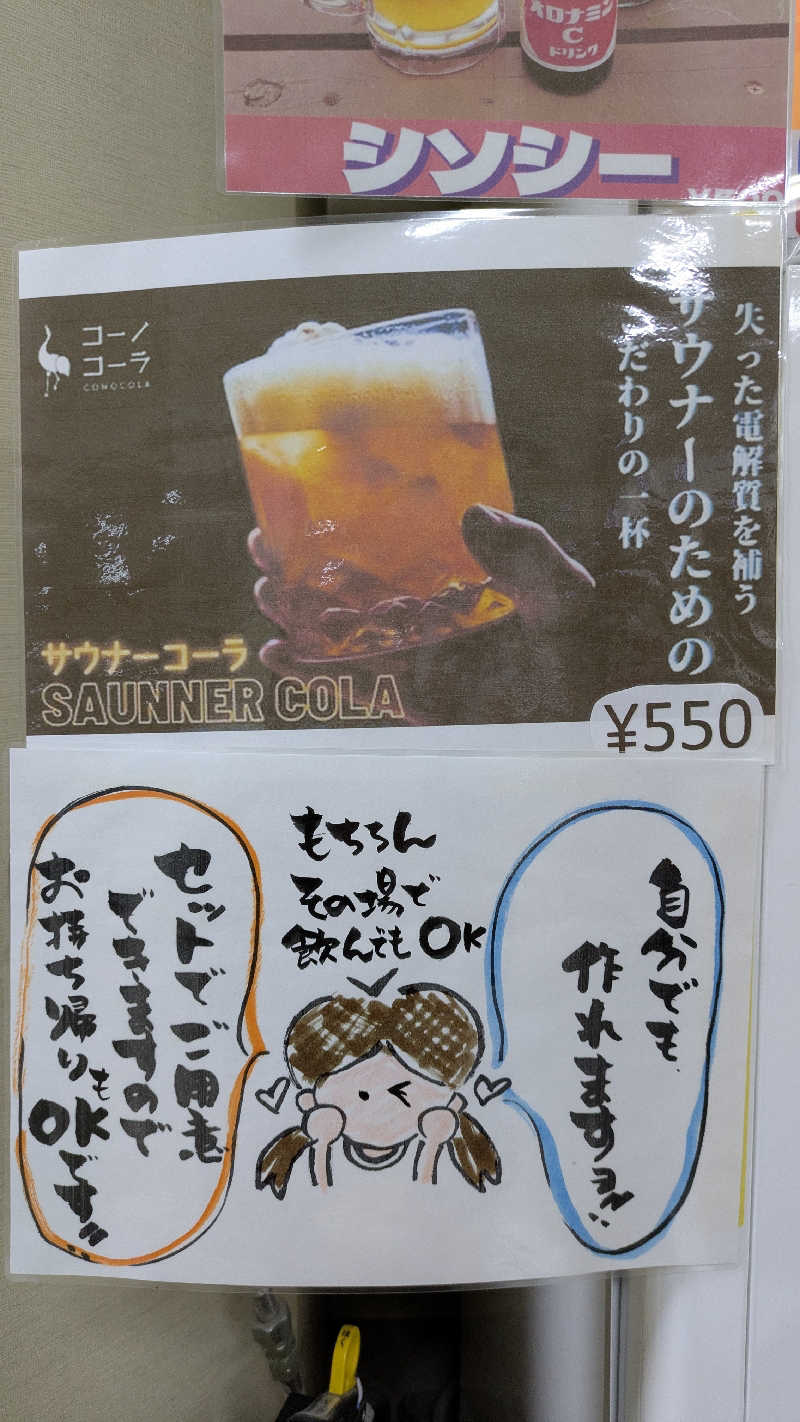 オロナミン
C
ドリンク
シソシー
コーノ
コーラ
CONOCOLA
失った電解質を補う
サウナーのための
こだわりの一杯
サウナーコーラ
SAUNNER COLA
¥550
自分でも
作れますヨ!!
もちろん
その場で
飲んでもOK
セットでご用意
できますので
お持ち帰りも
OKです!!